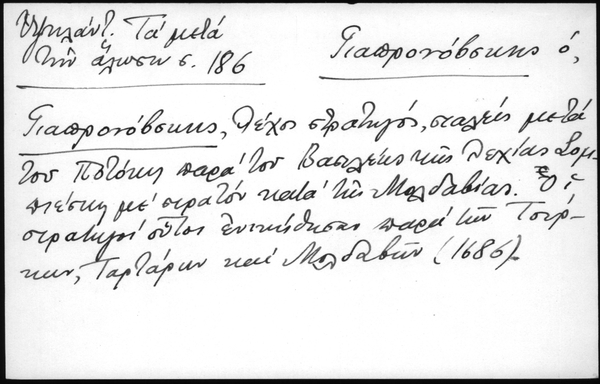 Ὑψηλάντ. Τά μετά
τήν ἅλωσιν σ. 186
Γιαπρονόβσκης ὁ,
Γιαπρονόβσκης, Λέχος στρατηγός, σταλείς μετά
τοῦ Ποτόκη παρά τοῦ Βασιλέως τῆς Λεχίας Σομ-
πιέσκη μέ στρατόν κατά τῆς Μολδαβίας. Οἱ
στρατηγοί οὗτοι ἐνικήθησαν παρά τῶν Τούρ-
κων, Ταρτάρων καί Μολδαβῶν (1686).